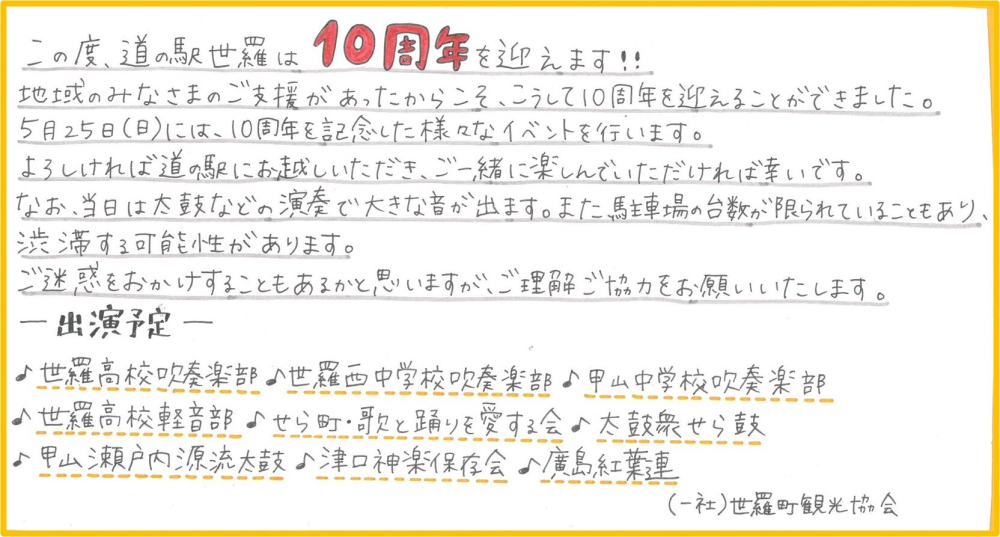 この度、道の駅世羅は10周年を迎えます!!
地域のみなさまのご支援があったからこそ、こうして10周年を迎えることができました。
5月25日(日)には、10周年を記念した様々なイベントを行います。
よろしければ道の駅にお越しいただき、ご一緒に楽しんでいただければ幸いです。
なお、当日は太鼓などの演奏で大きな音が出ます。また駐車場の台数が限られていることもあり、
渋滞する可能性があります。
ご迷惑をおかけすることもあるかと思いますが、ご理解ご協力をお願いいたします。
ー出演予定ー
♪世羅高校吹奏楽部 ♪世羅西中学校吹奏楽部 ♪甲山中学校吹奏楽部
♪世羅高校軽音部 ♪せら町・歌と踊りを愛する会 ♪太鼓衆せら鼓
♪甲山瀬戸内源流太鼓 ♪津口神楽保存会 ♪廣島紅葉連
(一社)世羅町観光協会